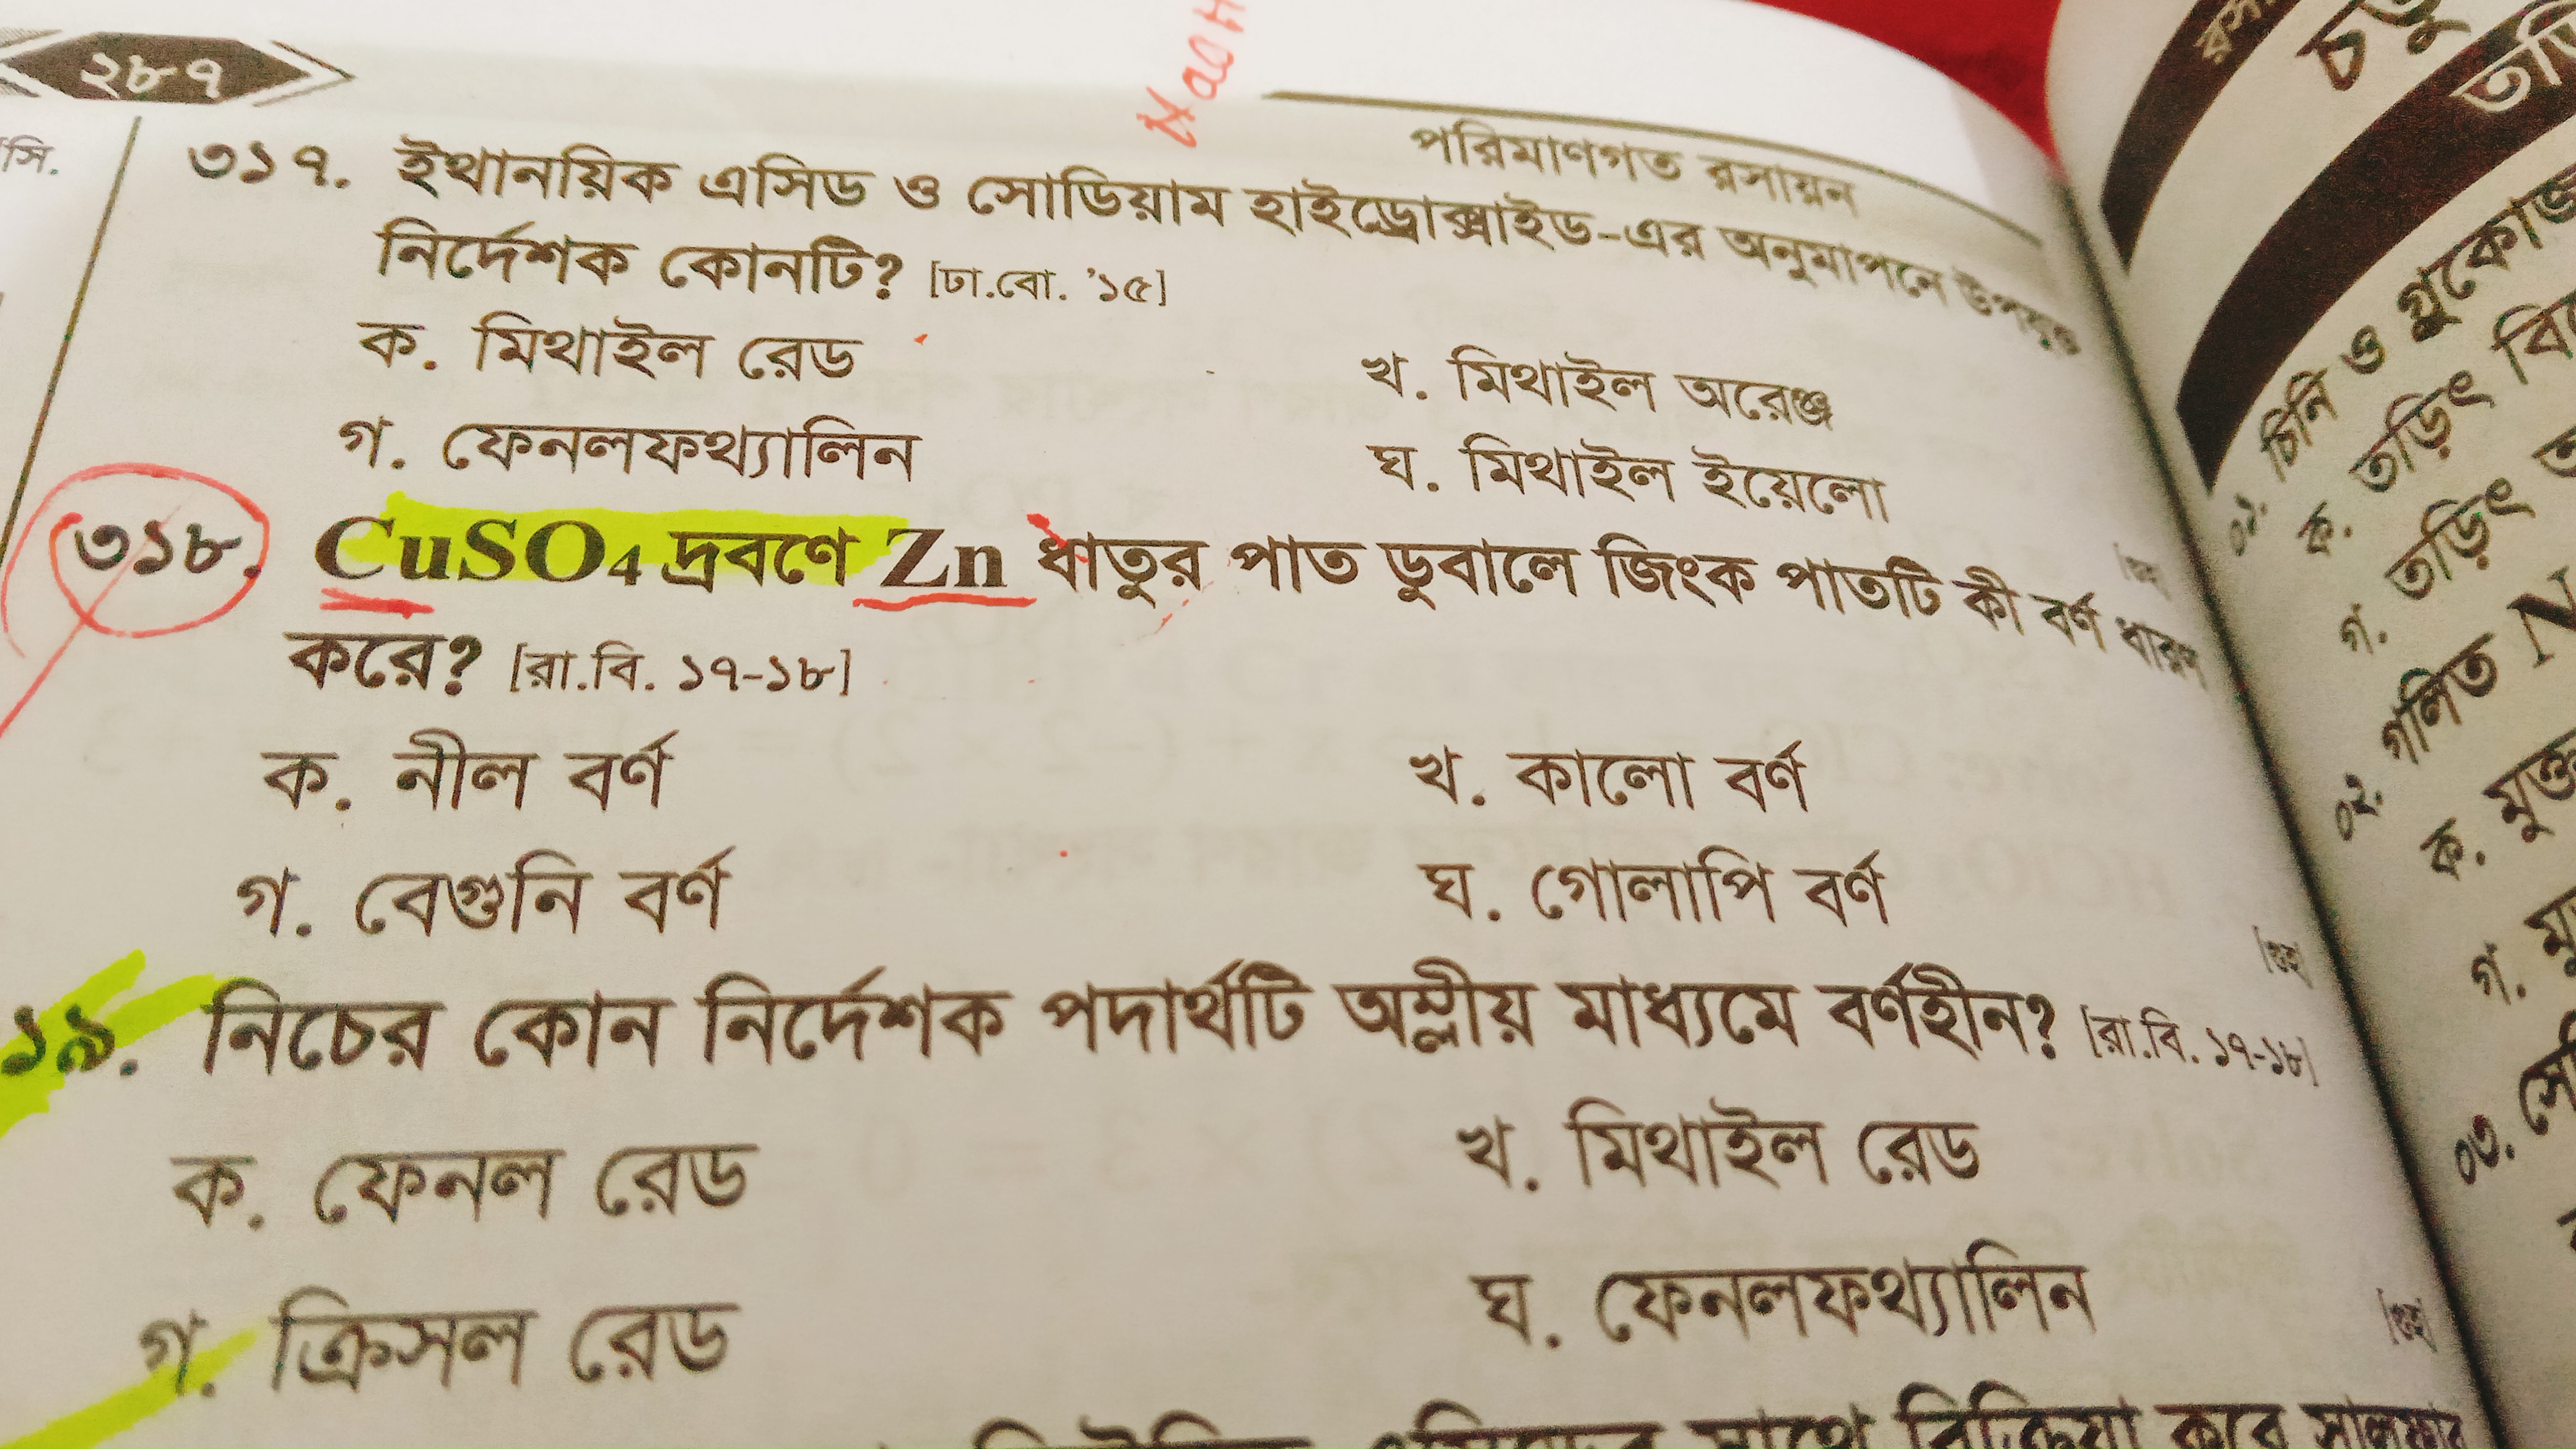 ২৮৭
পরিমাণগত রসায়ন
৩১৭. ইথানয়িক এসিড ও সোডিয়াম হাইড্রোক্সাইড-এর অনুমাপনে উপযুক্ত
নির্দেশক কোনটি? [ঢা.বো. '১৫]
ক. মিথাইল রেড
খ. মিথাইল অরেঞ্জ
গ. ফেনলফথ্যালিন
ঘ. মিথাইল ইয়েলো
৩১৮. CuSO₄ দ্রবণে Zn ধাতুর পাত ডুবালে জিংক পাতটি কী বর্ণ ধারণ
করে? [রা.বি. ১৭-১৮]
ক. নীল বর্ণ
খ. কালো বর্ণ
গ. বেগুনি বর্ণ
ঘ. গোলাপি বর্ণ
১৯. নিচের কোন নির্দেশক পদার্থটি অম্লীয় মাধ্যমে বর্ণহীন? [রা.বি. ১৭-১৮]
ক. ফেনল রেড
খ. মিথাইল রেড
গ. ক্রিসল রেড
ঘ. ফেনলফথ্যালিন
সি.
NaOH
০১. চিনি ও গ্লুকোজ
ক. তড়িৎ
গ. তড়িৎ
০২. গলিত N
ক.
গ.
০৩.